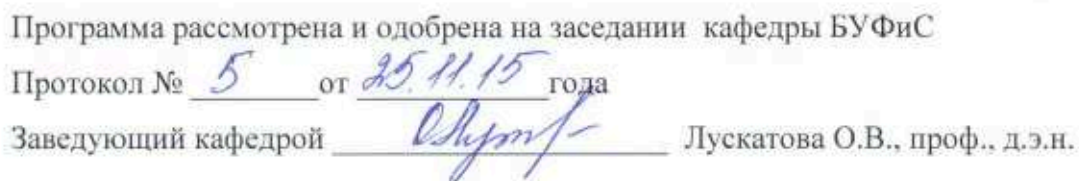 Программа рассмотрена и одобрена на заседании кафедры БУФиС
Протокол № 5 от 25.11.15 года
Заведующий кафедрой Лускатова О.В., проф., д.э.н.